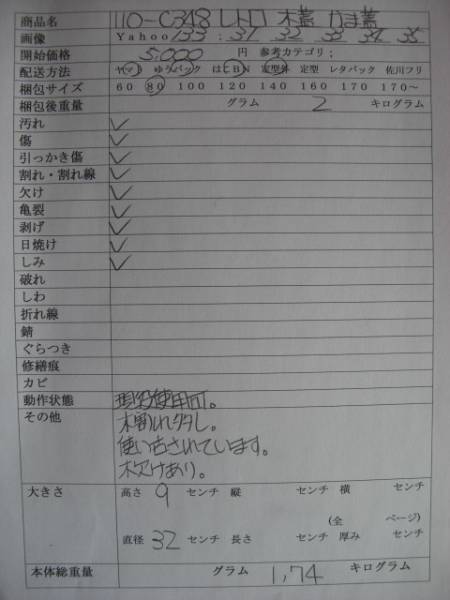 商品名 110-C348 レトロ 木蓋 かま蓋
画像 Yahoo 133 : 31 32 33 34 35
開始価格 5.000 円 参考カテゴリ;
配送方法 ヤマト ゆうパック はこBN 定型外 定型 レタパック 佐川フリ
梱包サイズ 60 80 100 120 140 160 170 170～
梱包後重量 グラム 2 キログラム
汚れ ✓
傷 ✓
引っかき傷 ✓
割れ・割れ線 ✓
欠け ✓
亀裂 ✓
剥げ ✓
日焼け ✓
しみ ✓
破れ
しわ
折れ線
錆
ぐらつき
修繕痕
カビ
動作状態 現役使用可。
その他 木割れ多し。
使い古されています。
木欠けあり。
大きさ 高さ 9 センチ 縦 センチ 横 センチ
(全 ページ)
直径 32 センチ 長さ センチ 厚み センチ
本体総重量 グラム 1,74 キログラム